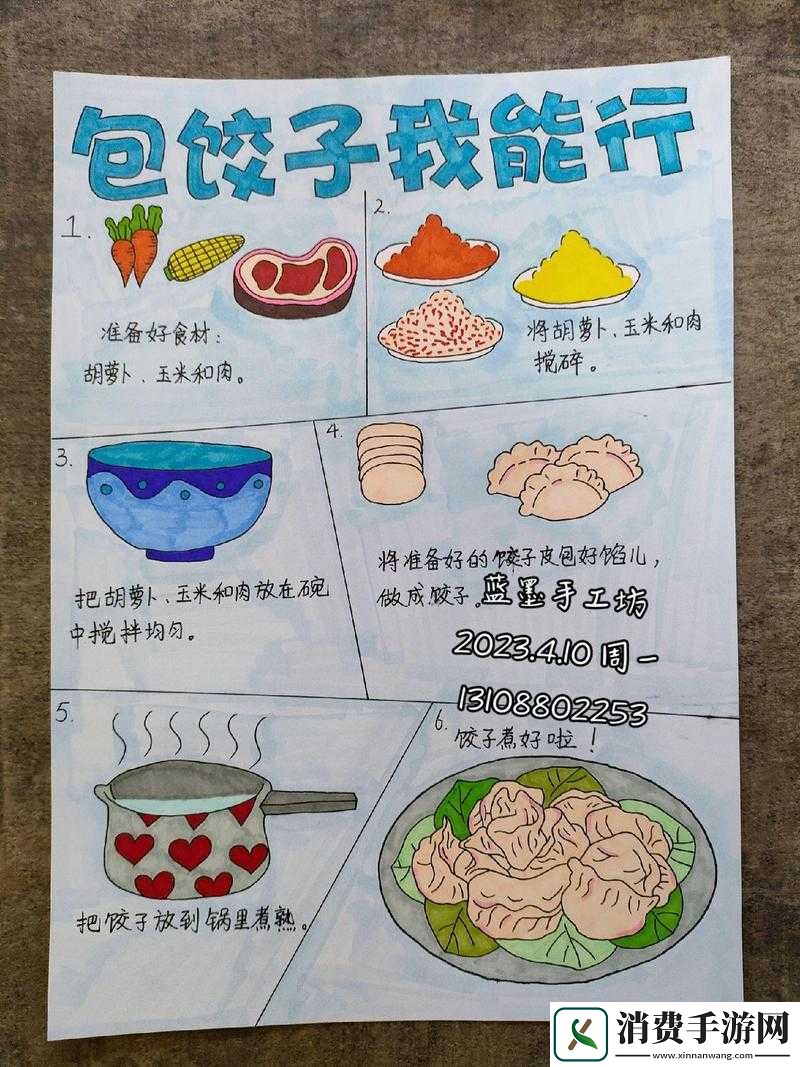 包饺子我能行
1.
准备好食材：
胡萝卜、玉米和肉。
2.
将胡萝卜、玉米和肉
搅碎。
3.
把胡萝卜、玉米和肉放在碗
中搅拌均匀。
4.
将准备好的饺子皮包好馅儿，
做成饺子。
蓝墨手工坊
2023.4.10 周一
13108802253
5.
把饺子放到锅里煮熟。
6.
饺子煮好啦！
消费手游网
www.xinnanwang.com